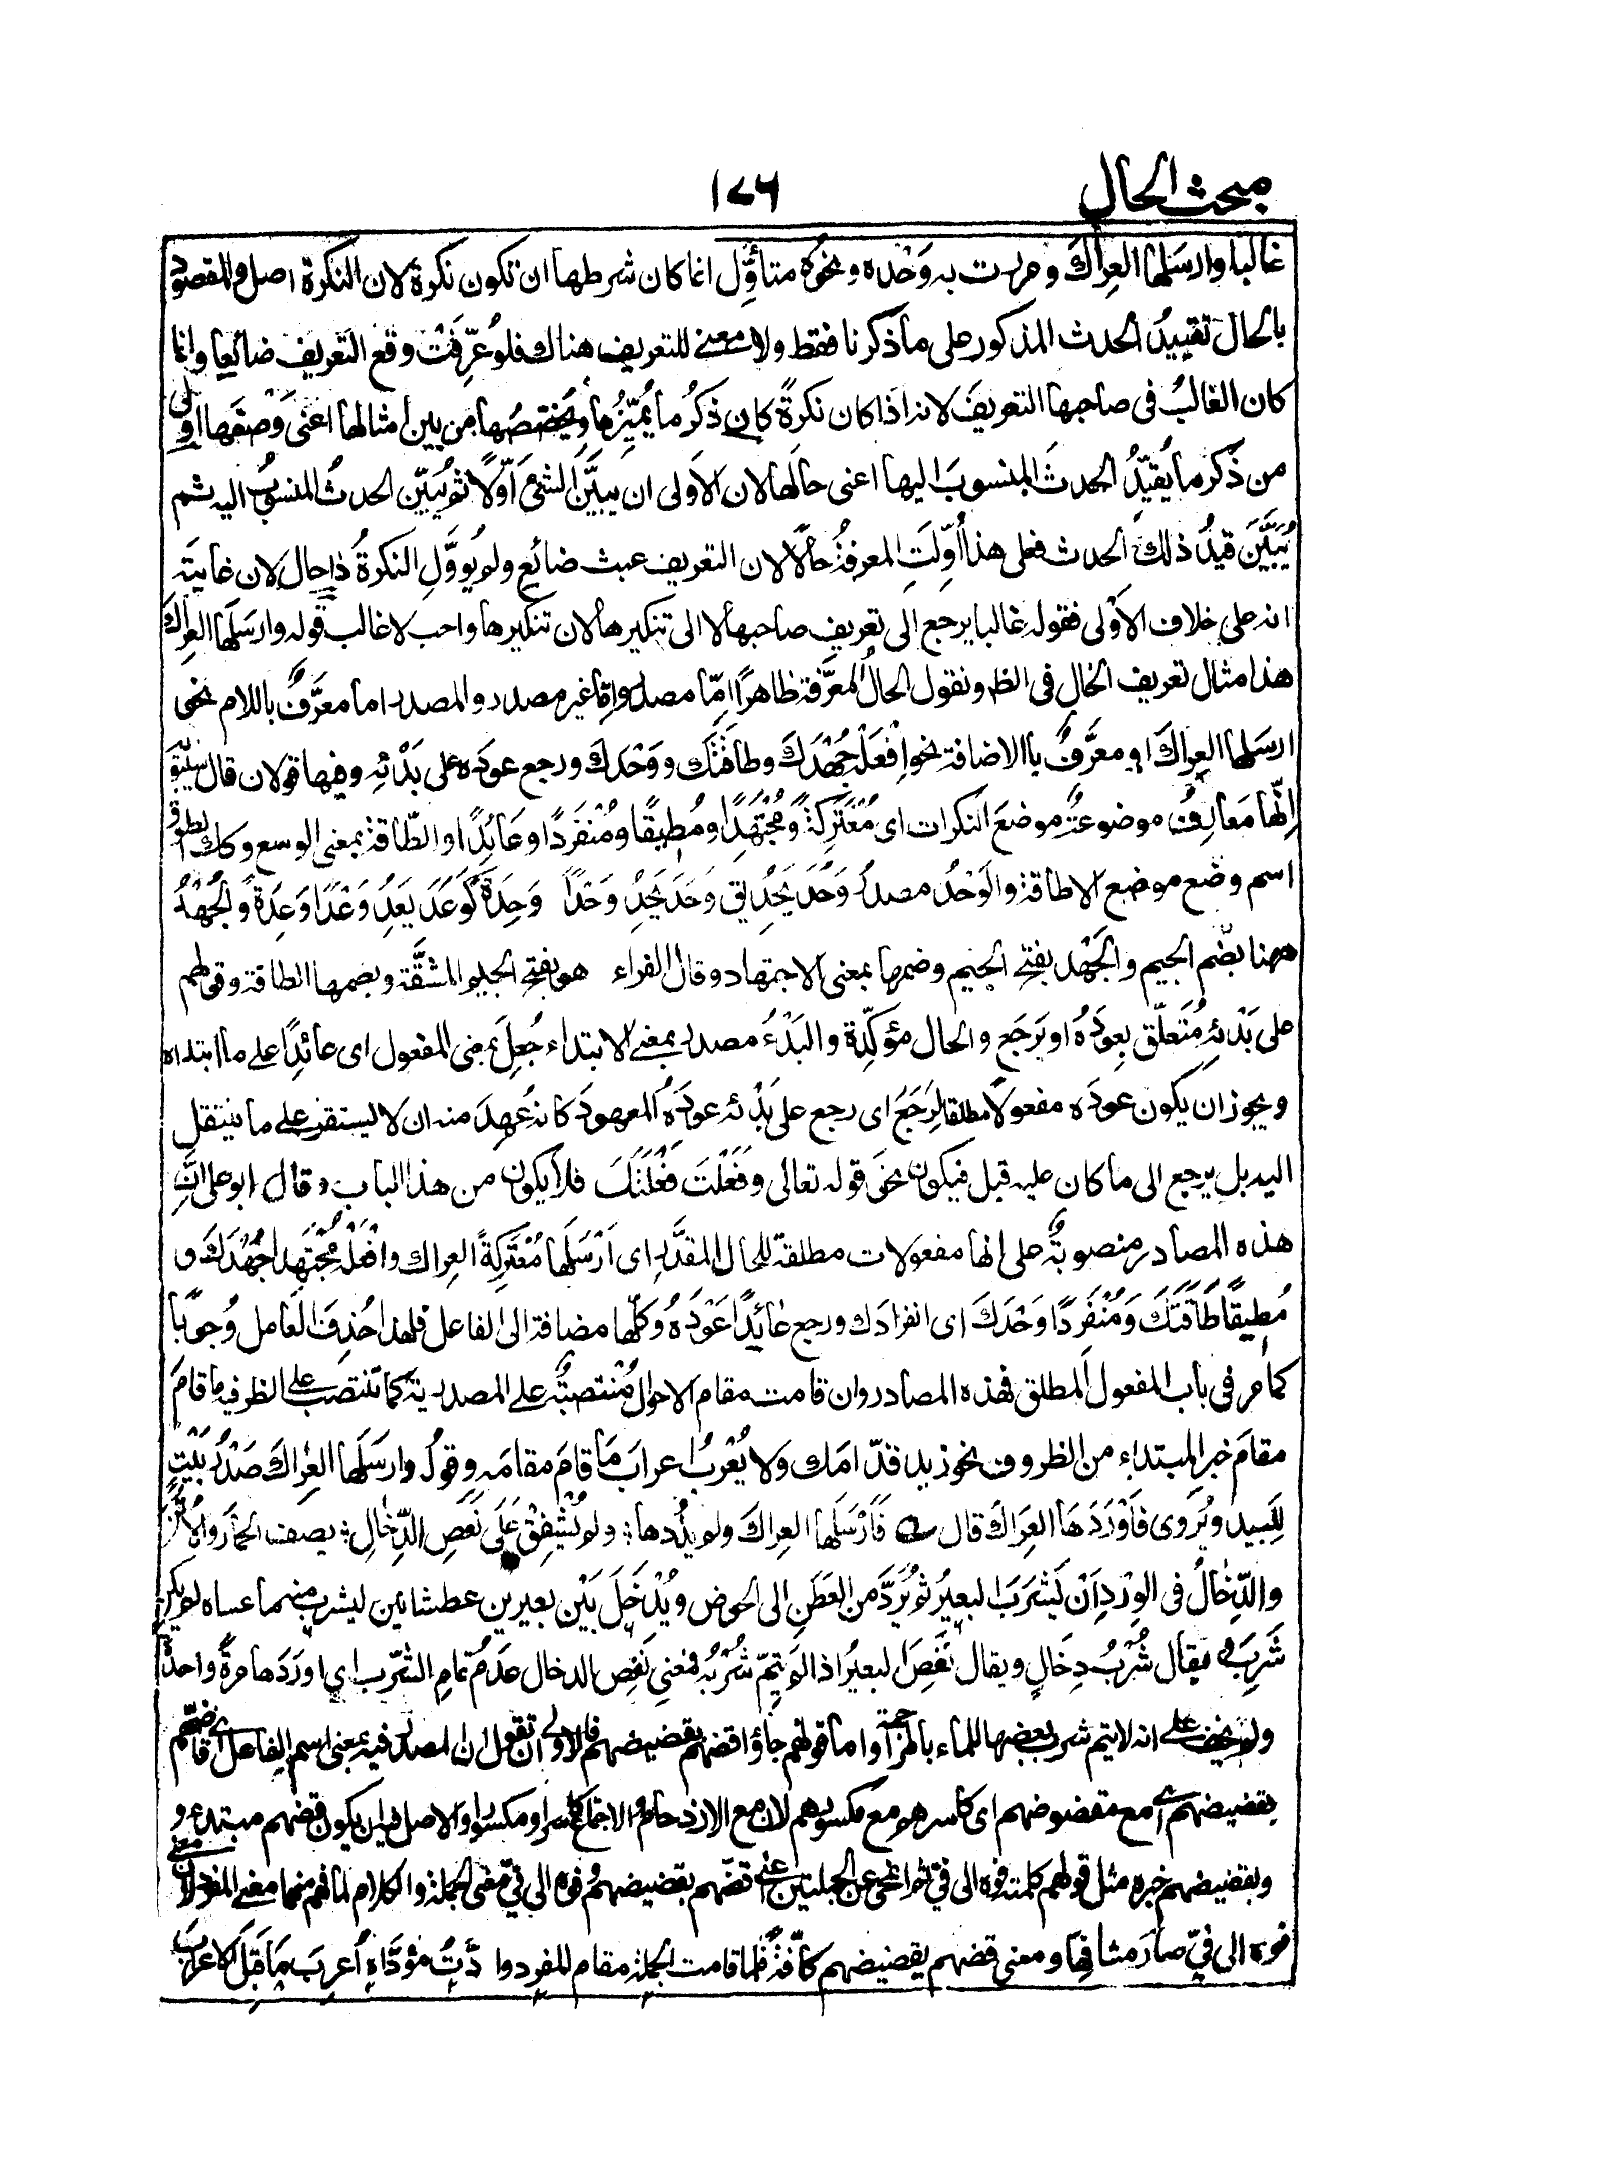 مبحث الحال
١٧٦
غالبا وارسلها العِراكَ ومررت به وَحْدَه ونحوُه متأوَّل انما كان شرطها ان تكون نكرة لان النكرة اصل والمقصود
بالحال تقييدُ الحدث المذكور على ما ذكرنا فقط ولا معنى للتعريف هناك فلو عُرِّفَتْ وقع التعريف ضائعا وانما
كان الغالبُ فى صاحبها التعريفَ لانه اذا كان نكرةً كان ذكرُ ما يُميّزُها ويُخصّصُها من بين امثالها اعنى وَصْفَها اولى
من ذكر ما يُقيّدُ الحدثَ المنسوبَ اليها اعنى حالَها لان الاَولى ان يبيَّنَ الشئ اَوّلاً ثم يُبيّن الحدثُ المنسوبُ اليه ثم
يُبيَّن قيدُ ذلك الحدث فعلى هذا أُوِّلَتِ المعرفةُ حالاً لان التعريف عبث ضائع ولم يُووَّلِ النكرةُ ذا حال لان غايته
انه على خلاف الاَوْلى فقوله غالبا يرجع الى تعريف صاحبها لا الى تنكيرها لان تنكيرها واجب لا غالب قوله وارسَلَها العِراكَ
هذا مثال تعريف الحال فى الظ ونقول الحالُ المعرَّفة ظاهرًا اِمّا مصدر واِمّا غير مصدر والمصدر اما معرَّفٌ باللام نحو
ارسَلها العِراكَ او معرَّفٌ باالاضافة نحو افْعَلْه جُهْدَكَ وطاقَتَك ووَحْدَكَ ورجع عودَه على بَدْئِه وفيها قولان قال سيبويه
اِنّها مَعارِفُ موضوعةٌ موضعَ النكرات اى مُعْتَرِكَةً ومُجْتَهِدًا ومُطِيقًا ومُنْفَرِدًا وعَائِدًا والطّاقةُ بمعنى الوسع وكك الطوق
اسم وضع موضع الاطاقة والوَحْدُ مصدرُ وَحَدَ يَحِدُ يق وَحَدَ يَحِدُ وَحْدًا وَحِدَةً كوَعَدَ يَعِدُ وَعْدًا وعِدَةً والجُهْدُ
ههنا بضم الجيم والجَهْد بفتح الجيم وضمها بمعنى الاجتهاد وقال الفراء هو بفتح الجيم المشقَّة وبضمها الطاقة وقولهم
على بَدْئِه مُتَعلّق بِعودَهُ او برَجَع والحال مؤكِّدة والبَدْءُ مصدر بمعنى الابتداء جُعِلَ بمعنى المفعول اى عائدًا على ما ابتداه
ويجوز ان يكون عودَه مفعولاً مطلقا لِرَجَعَ اى رجع على بَدْئه عودَهُ المعهودَ كانه عُهِدَ منه ان لا يستقر على ما ينتقل
اليه بل يرجع الى ما كان عليه قبل فيكون نحو قوله تعالى وفَعَلْتَ فَعْلَتَكَ فلا يكون من هذا الباب وقال ابو على اِنّ
هذه المصادر منصوبةٌ على انها مفعولات مطلقة للحال المقدَّر اى اَرْسَلَها مُعْتَرِكَةً العِراك وافْعَلْه مُجْتَهِدا جُهْدَكَ و
مُطِيقًا طَاقَتَكَ ومُنْفَرِدًا وَحْدَكَ اى انفرادَك ورجع عَائِدًا عَوْدَهُ وكلّها مضافة الى الفاعل فلهذا حُذِفَ العامل وُجوبًا
كما مر فى باب المفعول المطلق فهذه المصادر وان قامت مقام الاحوال مُنْتصبةٌ على المصدرية كما تنتصب على الظرفية ما قامَ
مقامَ خبر المبتداء من الظروف نحو زيد قدّامَك ولا يُعْرَبُ اعرابَ ما قامَ مقامَه وقوله وارسَلَها العِراكَ صَدْرُ بَيْتٍ
لِلَبيد ويُروى فاَوْرَدَهَا العِرَاكَ قال فَأَرْسَلَها العِراكَ ولم يَذُدها ؛ ولم يُشْفِقْ عَلَى نَغَصِ الدِّخَالِ ؛ يصف الحمار والاُتُن
والدِّخالُ فى الوِرْدِ اَنْ يَشْرَبَ البعيرُ ثم يُرَدَّ من العَطَنِ الى الحوض ويُدْخَلَ بَيْن بعيرين عطشانين ليشرب منهما عساه لم يكن
شَرِبَ فيقال شُرْبُ دِخَالٍ ويقال نَغِصَ البعيرُ اذا لم يَتِمّ شُرْبُه فمعنى نَغَصِ الدخال عَدَمُ تمامِ الشّرب اى اورَدَها مرةً واحدةً
ولم يخف على انه لا يتم شرب بعضها للماء بالمزاحمة واما قولهم جاؤا قضهم بقضيضهم فالاولى ان تقول ان المصدر فيه بمعنى اسم الفاعل اى قاضّهم
بقضيضهم اى مع مقضوضهم اى كاسرهم مع مكسورهم لان مع الازدحام والاجتماع كاسرا ومكسورا والاصل فيه ان يكون قضهم مبتدء و
وبقضيضهم خبره مثل قولهم كلمته فوه الى فىّ ثم انمحى عن الجملتين اعنى قضّهم بقضيضهم وفوه الى فىّ معنى الجملة والكلام لما فهم منهما معنى المفرد لان معنى
فوه الى فىّ صارَ مشافِها ومعنى قضهم بقضيضهم كافّةً فلما قامت الجملة مقام المفرد وادَّتْ مؤدَّاه اُعرِبَ ما قَبِلَ الاعرابَ